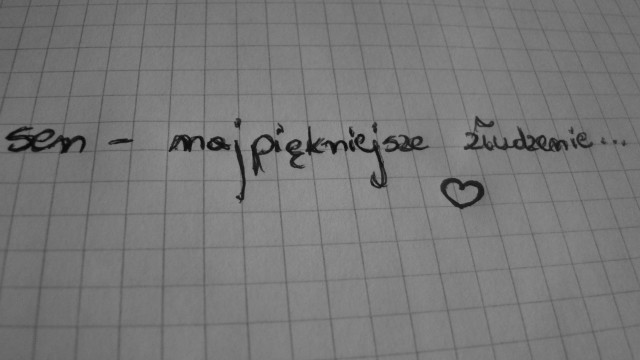 sen - najpiękniejsze złudzenie...